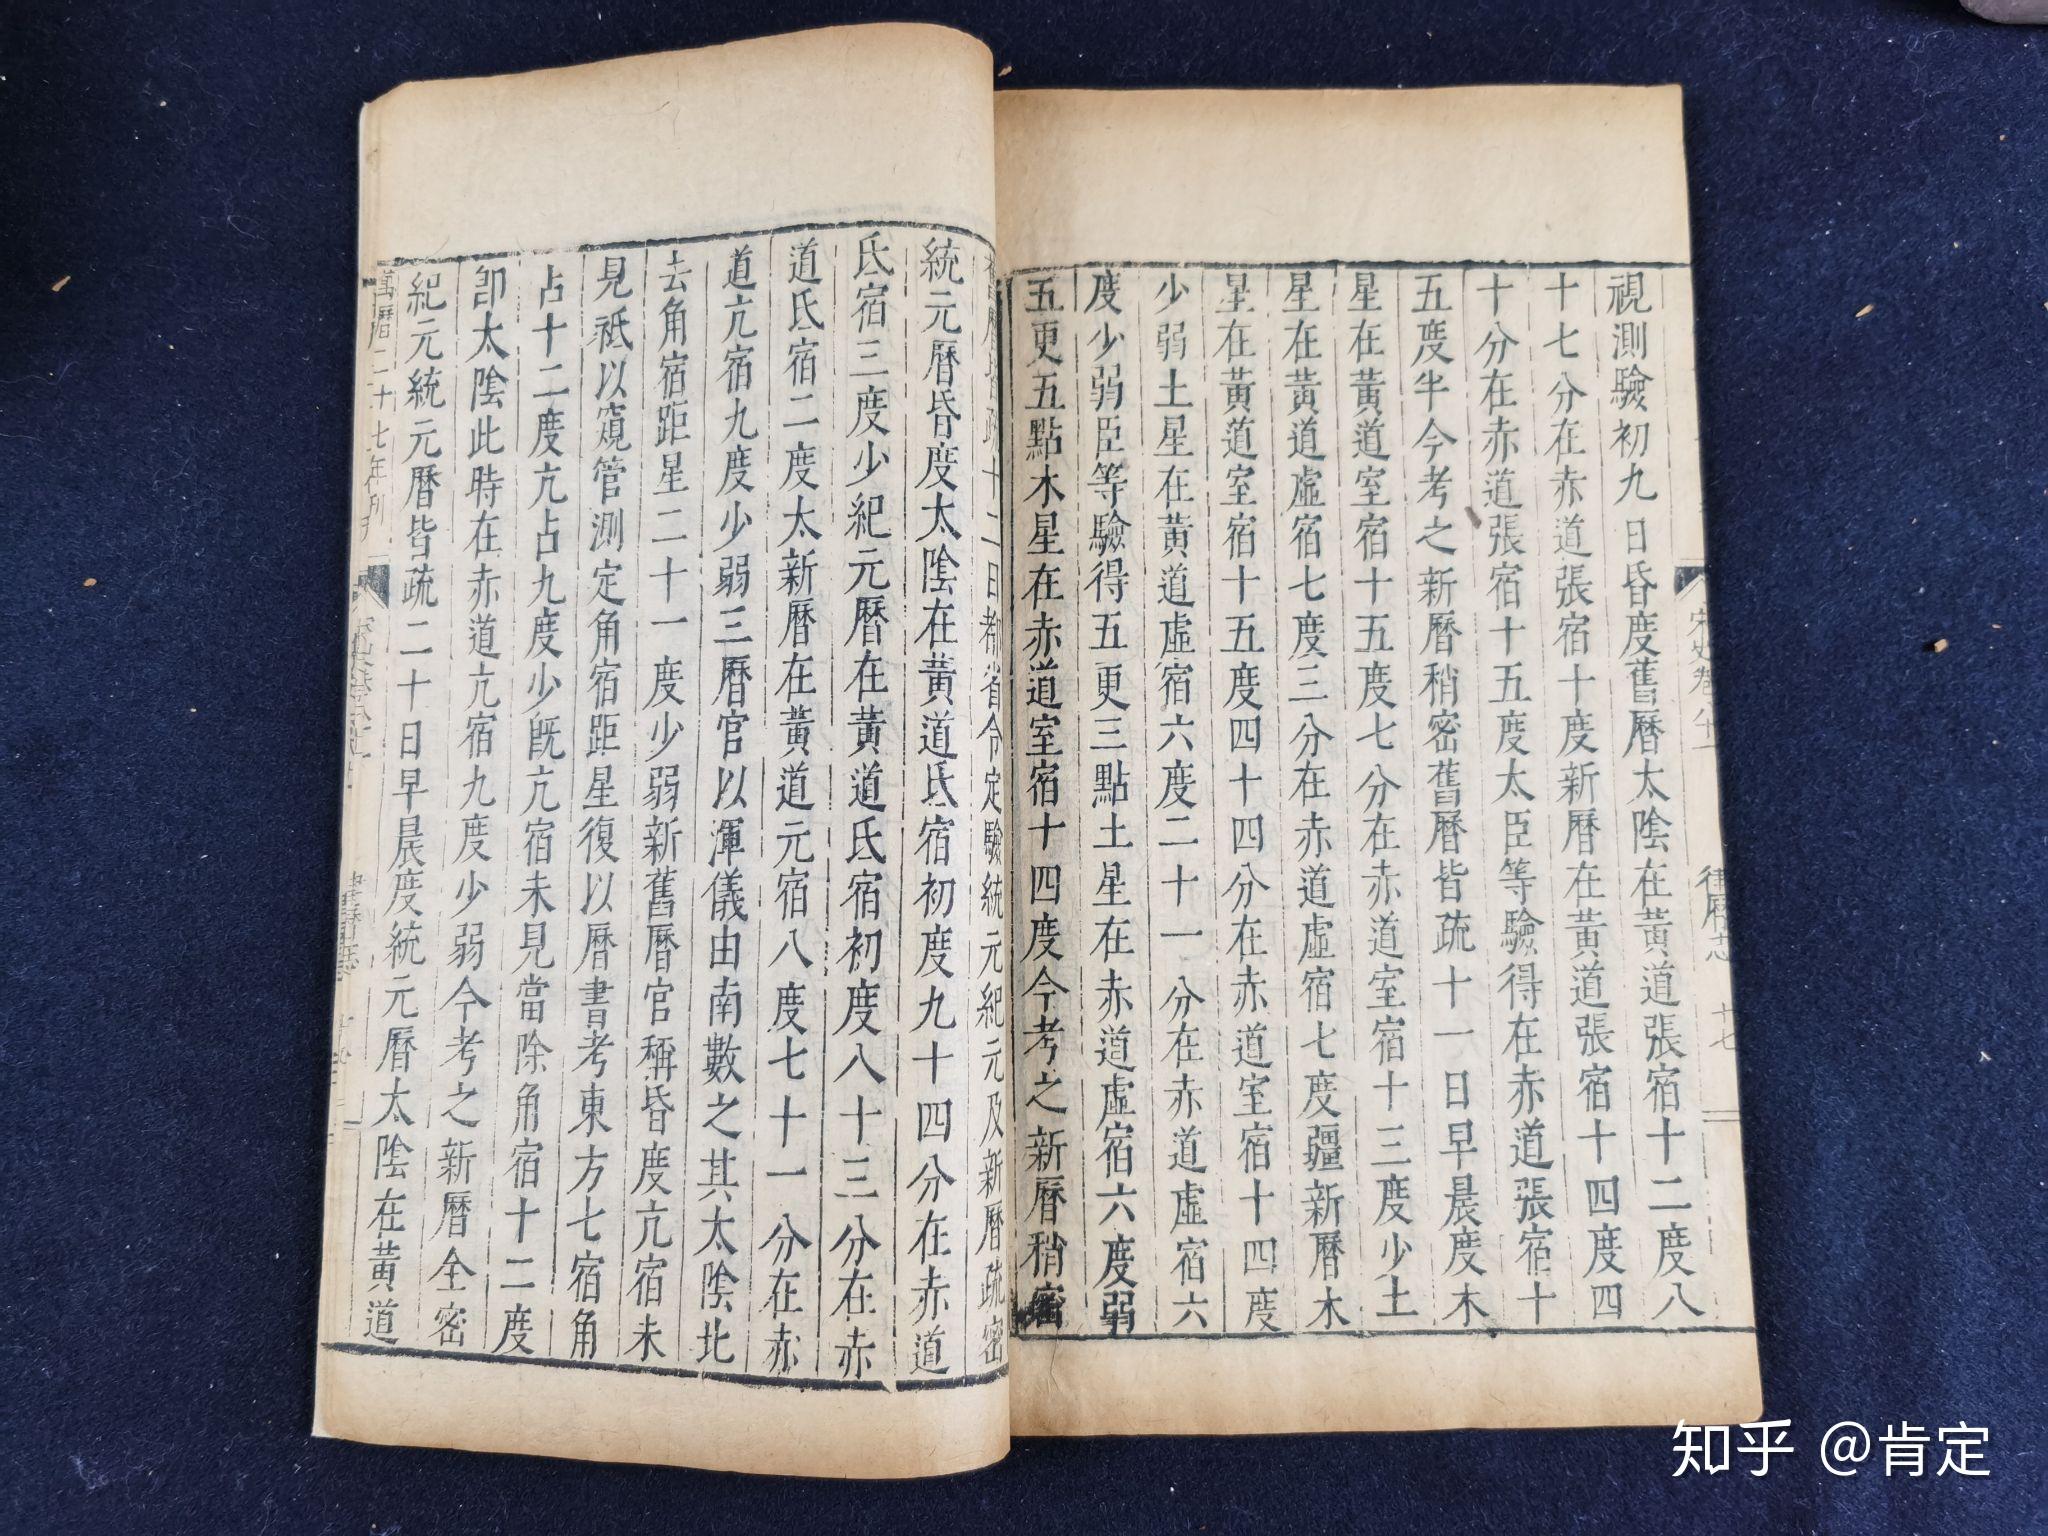 宋史卷八十一
律曆志
十七
視測驗初九日昏度舊曆太陰在黃道張宿十二度八
十七分在赤道張宿十度新曆在黃道張宿十四度四
十分在赤道張宿十五度太臣等驗得在赤道張宿十
五度半今考之新曆稍密舊曆皆疏十一日早晨度木
星在黃道室宿十五度七分在赤道室宿十三度少土
星在黃道虛宿七度三分在赤道虛宿七度彊新曆木
星在黃道室宿十五度四十四分在赤道室宿十四度
少弱土星在黃道虛宿六度二十一分在赤道虛宿六
度少弱臣等驗得五更三點土星在赤道虛宿六度弱
五更五點木星在赤道室宿十四度今考之新曆稍密
舊曆皆疏十二日都省令定驗統元紀元及新曆疏密
統元曆昏度太陰在黃道氐宿初度九十四分在赤道
氐宿三度少紀元曆在黃道氐宿初度八十三分在赤
道氐宿二度太新曆在黃道亢宿八度七十一分在赤
道亢宿九度少弱三曆官以渾儀由南數之其太陰北
去角宿距星二十一度少弱新舊曆官稱昏度亢宿未
見祇以窺管測定角宿距星復以曆書考東方七宿角
占十二度亢占九度少旣亢宿未見當除角宿十二度
卽太陰此時在赤道亢宿九度少弱今考之新曆全密
紀元統元曆皆疏二十日早晨度統元曆太陰在黃道
萬曆二十七年刊
知乎 @肯定